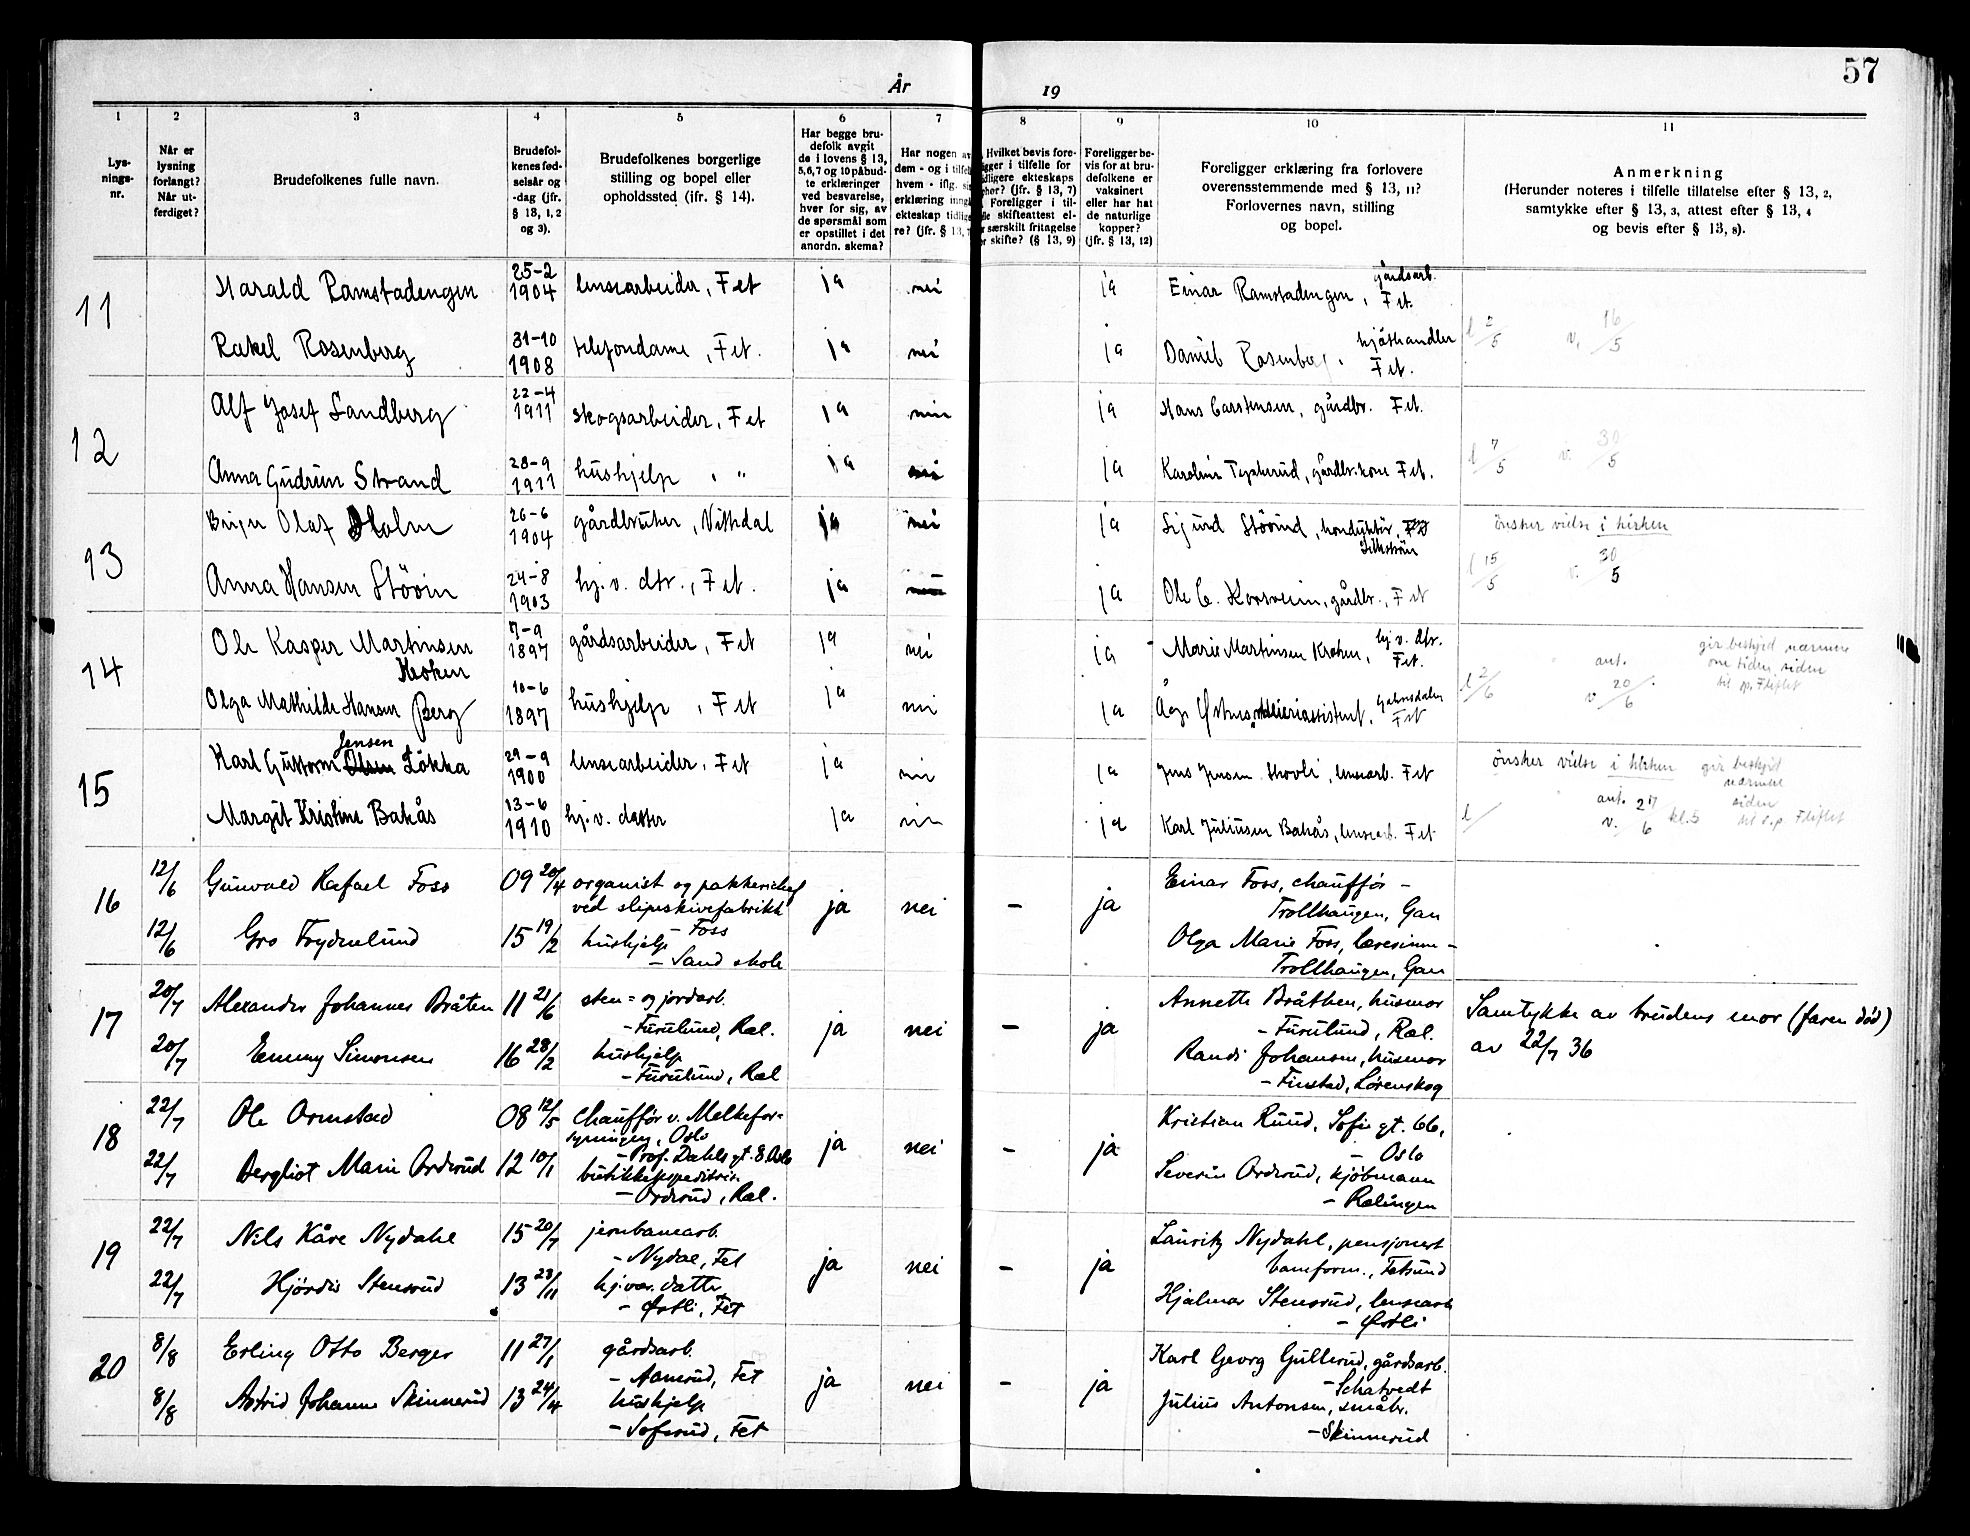 57
År 19
1 2 3 4 5 6 7 8 9 10 11
Lys-
nings-
nr.
Når er
lysning
forlangt?
Når ut-
ferdiget?
Brudefolkenes fulle navn.
Brudefol-
kenes fød-
selsår og
-dag (jfr.
§ 13, 1, 2
og 3).
Brudefolkenes borgerlige
stilling og bopel eller
opholdssted (ifr. § 14).
Har begge bru-
defolk avgit
de i lovens § 13,
5, 6, 7 og 10 påbud-
te erklæringer
ved besvarelse,
hver for sig, av
de spørsmål som
er opstillet i det
anordn. skema?
Har nogen av
dem - og i tilfel
hvem - iflg. si
erklæring inng
ekteskap tidlige
re? (jfr. § 13, 7
Hvilket bevis fore-
ligger i tilfelle for
tidligere ekteskaps
opher? (jfr. § 13, 7)
Foreligger i til-
felle skifteattest el-
er særskilt fritagelse
for skifte? (§ 13, 9)
Foreligger be-
vis for at bru-
defolkene er
vaksinert
eller har hat
de naturlige
kopper?
(jfr. § 13, 12)
Foreligger erklæring fra forlovere
overensstemmende med § 13, 11?
Forlovernes navn, stilling
og bopel.
Anmerkning
(Herunder noteres i tilfelle tillatelse efter § 13, 2,
samtykke efter § 13, 3, attest efter § 13, 4
og bevis efter § 13, 8).
11 Harald Ramstadengen 25-2 1904 lensearbeider, Fet ja nei ja Einar Ramstadengen, gårdsarb. Fet.
Rakel Rosenberg 31-10 1908 telefondame, Fet. ja nei ja Daniel Rosenberg, kjøthandler Fet. l 2/5 v. 16/5
12 Alf Josef Sandberg 22-4 1911 skogsarbeider, Fet ja nei ja Hans Carstensen, gårdbr. Fet.
Anna Gudrun Strand 28-9 1911 hushjelp, " ja nei ja Karoline, gårdbr.kone Fet. l 7/5 v. 30/5
13 Birger Olaf Holm 26-6 1904 gårdbruker, Vittdal ja nei ja Sigurd Störind, konduktör, Lillestrøm ønsker vielse i kirken
Anna Hansen Störin 24-8 1903 hj. v. dtr., Fet. ja ja Ole C. Korsveien, gårdbr., Fet l 15/5 v. 30/5
14 Ole Kasper Martinsen Kroken 7-9 1897 gårdsarbeider, Fet ja nei ja Marie Martinsen Kroken, hj. v. dtr. Fet. gir beskjed nærmere om tiden siden
Olga Mathilde Hansen Berg 10-6 1897 hushjelp, Fet ja nei ja Åge Østnes, meieriassistent, Fet l 2/6 ant. v 20/6
15 Karl Guttorm Olsen Jensen Løkka 29-9 1900 lensearbeider, Fet ja nei ja Jens Jensen Hovli, lensearb. Fet ønsker vielse i kirken gir beskjed nærmere siden
Margit Kristine Bakås 13-6 1910 hj. v. datter ja nei ja Karl Juliusen Bakås, lensearb. Fet l/ ant. v. 27/6 kl. 5
16 12/6 Gunvald Rafael Foss 09 20/4 organist og pakkerichef ja nei – ja Einar Foss, chaufför –
ved slipeskivefabrikk Trollhaugen, Gan
– Foss
12/6 Gro Frydenlund 15 19/2 hushjelp Olga Marie Foss, lærerinne –
– Sand skole Trollhaugen, Gan
17 20/7 Alexander Johannes Bråten 11 21/6 sten- og jordarb. ja nei – ja Annette Bråthen, husmor Samtykke av brudens mor (faren död)
– Furulund, Ræl. – Furulund, Ræl. av 22/7 36
20/7 Emmy Simonsen 16 28/2 hushjelp Randi Johansen, husmor
– Furulund, Ræl – Finstad, Lørenskog
18 22/7 Ole Ormstad 08 12/5 chaufför v. Melkefor- ja nei – ja Kristian Ruud, Sofiegt. 66,
syningen, Oslo – Oslo
– Prof. Dahls gt. 8 Oslo
22/7 Bergliot Marie Ordrud 12 10/1 butikkekspeditrise Severin Ordrud, kjöbmann
– Ordrud, Ræl. – Rælingen
19 22/7 Nils Kåre Nydahl 15 20/7 jernbanearb. ja nei – ja Lauritz Nydahl, pensjonert
– Nydal, Fet baneform., Fetsund
22/7 Hjördis Stensrud 13 28/11 hj.vær. datter Hjalmar Stensrud, lensearb
– Østli, Fet – Østli
20 8/8 Erling Otto Berger 11 27/1 gårdsarb. ja nei – ja Karl Georg Gullerud, gårdsarb.
– Aamrud, Fet – Schatvedt
8/8 Astrid Johanne Skinnerud 13 24/4 hushjelp Julius Antonsen, småbr.
– Soferud, Fet – Skinnerud